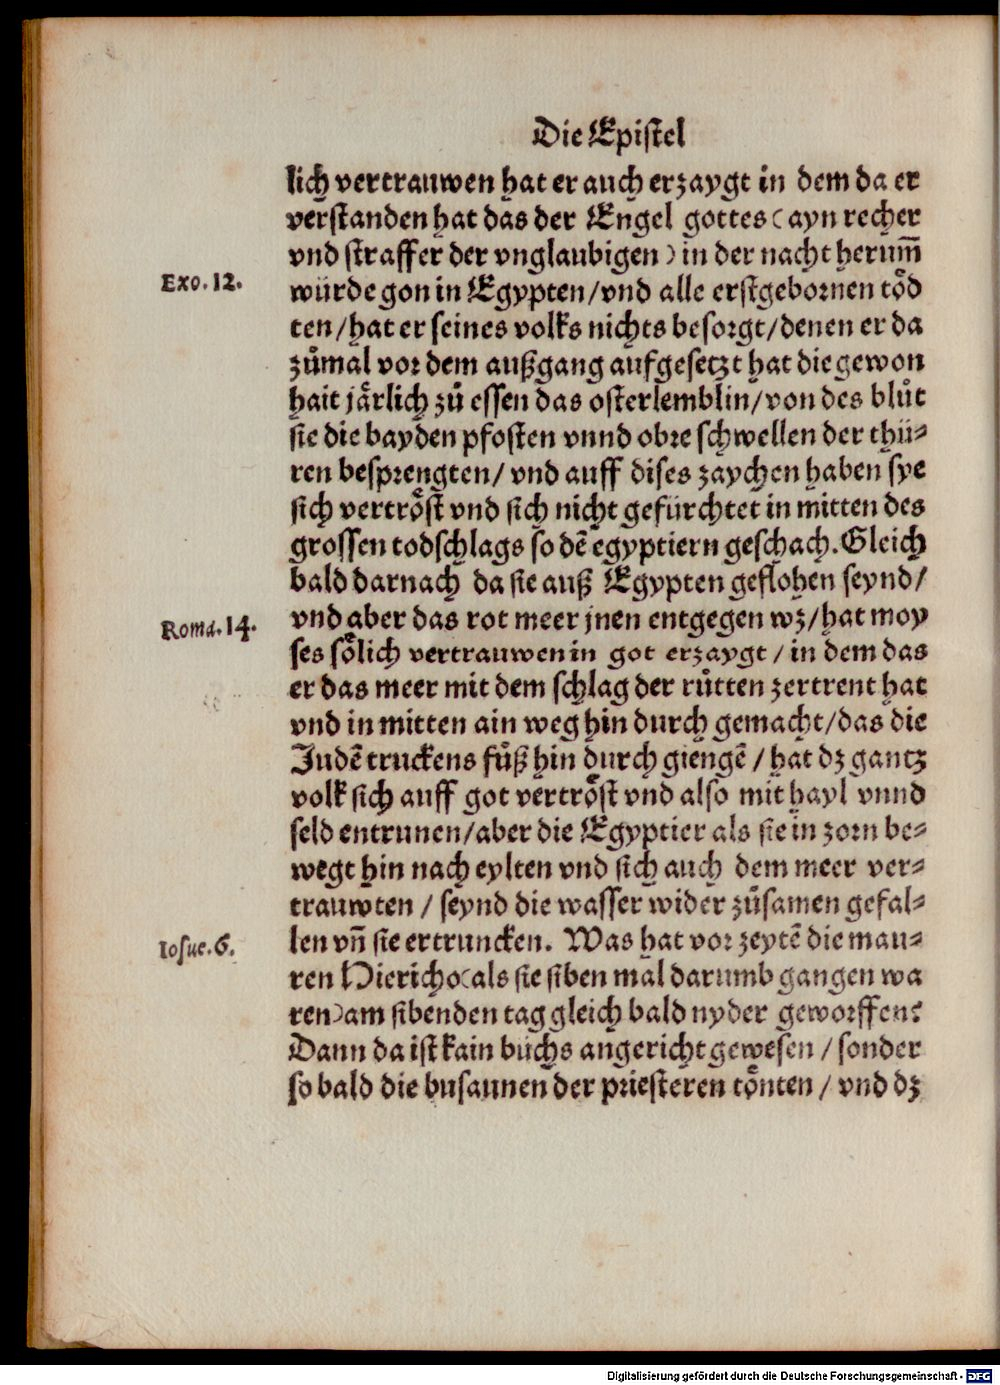 Die Epistel
lich vertrauwen hat er auch erzaygt in dem da er
verstanden hat das der Engel gottes (ayn recher
vnd straffer der vnglaubigen) in der nacht herum̄
Exo. 12.
würde gon in Egypten/vnd alle erstgebornen toͤd
ten/hat er seines volks nichts besorgt/denen er da
zuͦmal vor dem außgang aufgesetzt hat die gewon
hait jaͤrlich zuͦ essen das osterlemblin/von des bluͦt
sie die bayden pfosten vnnd obre schwellen der thü⸗
ren besprengten/ vnd auff dises zaychen haben sye
sich vertroͤst vnd sich nicht gefürchtet in mitten des
grossen todschlags so dē egyptiern geschach. Gleich
bald darnach da sie auß Egypten geflohen seynd/
Roma. 14.
vnd aber das rot meer jnen entgegen wz/hat moy
ses soͤlich vertrauwen in got erzaygt / in dem das
er das meer mit dem schlag der ruͦtten zertrent hat
vnd in mitten ain weg hin durch gemacht/das die
Judē truckens fuͦß hin durch giengē / hat dz gantz
volk sich auff got vertroͤst vnd also mit hayl vnnd
seld entrunen/aber die Egyptier als sie in zorn be⸗
wegt hin nach eylten vnd sich auch dem meer ver⸗
trauwten / seynd die wasser wider zuͦsamen gefal⸗
Iosue. 6.
len vn̄ sie ertruncken. Was hat vor zeytē die mau⸗
ren Hiericho (als sie siben mal darumb gangen wa
ren) am sibenden tag gleich bald nyder geworffen?
Dann da ist kain büchs angericht gewesen / sonder
so bald die busaunen der priesteren toͤnten / vnd dz
Digitalisierung gefördert durch die Deutsche Forschungsgemeinschaft - DFG